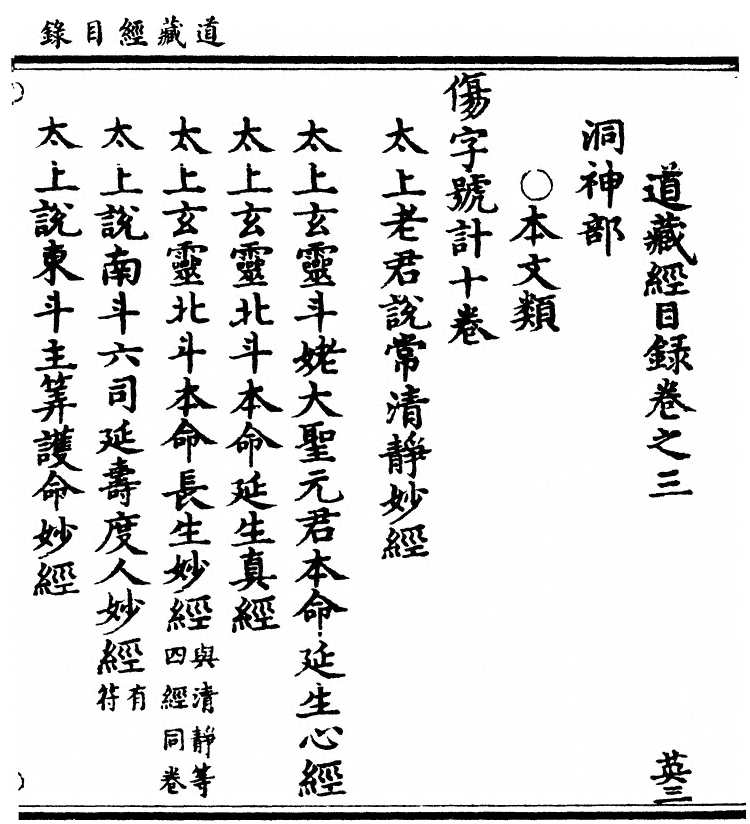 道藏經目錄
道藏經目錄卷之三
英三
洞神部
○本文類
傷字號計十卷
太上老君說常清靜妙經
太上玄靈斗姥大聖元君本命延生心經
太上玄靈北斗本命延生真經
太上玄靈北斗本命長生妙經與清靜等四經同卷
太上說南斗六司延壽度人妙經有符
太上說東斗主筭護命妙經